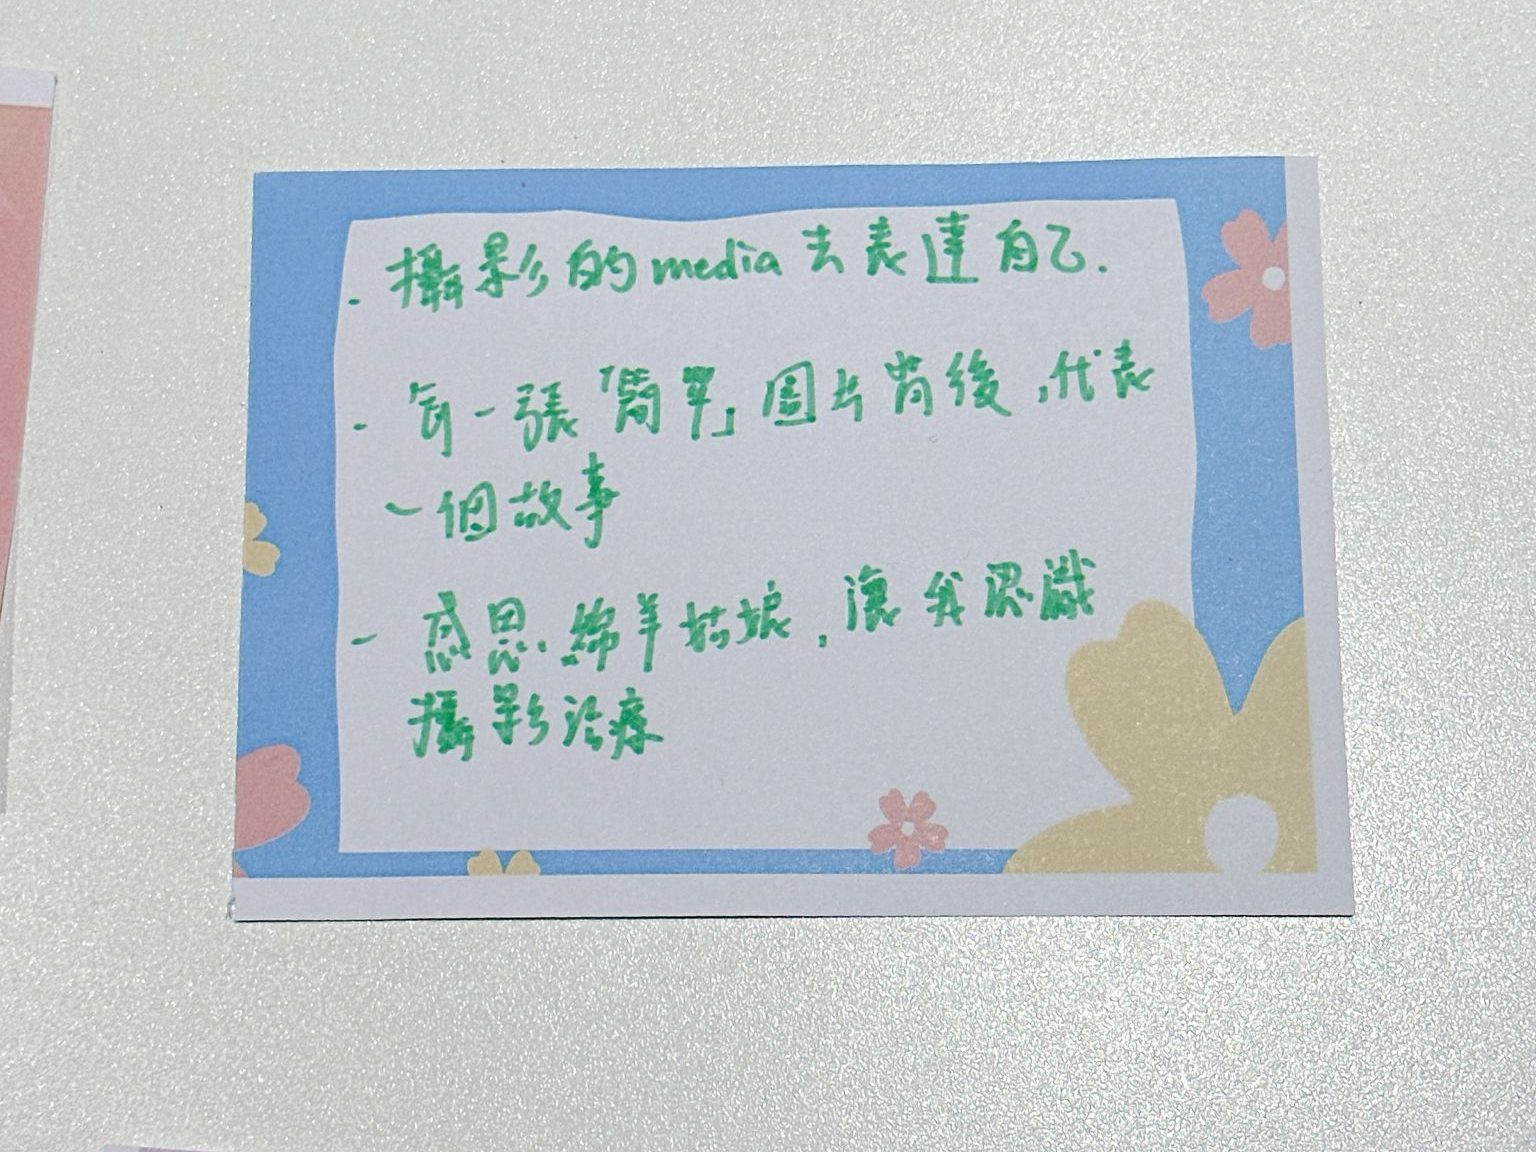 · 攝影的media去表達自己.
· 每一張「簡單」圖片背後,代表
一個故事
- 感恩綿羊姑娘,讓我認識
攝影治療